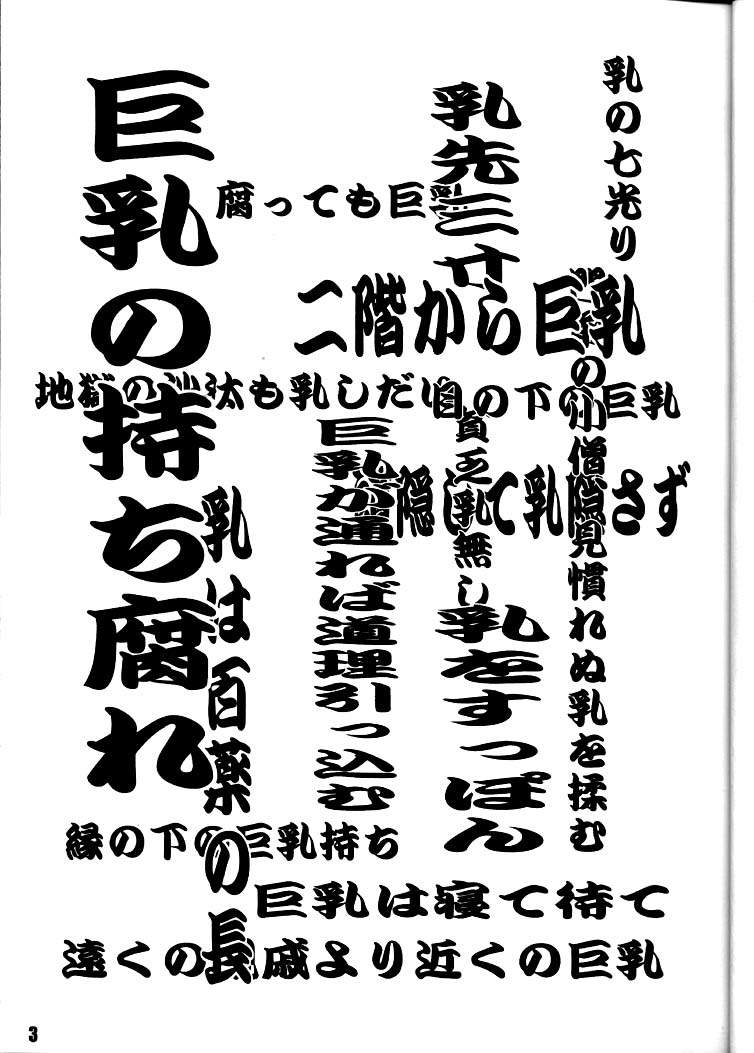 乳の七光り
門前の小僧見慣れぬ乳を揉む
乳先三寸
乳をすっぽん
貧乏乳無し
巨乳が通れば道理引っ込む
二階から巨乳
腐っても巨乳
地獄の沙汰も乳しだい
目の下の巨乳
隠して乳隠さず
巨乳の持ち腐れ
乳は百薬の長
縁の下の巨乳持ち
巨乳は寝て待て
遠くの親戚より近くの巨乳
3